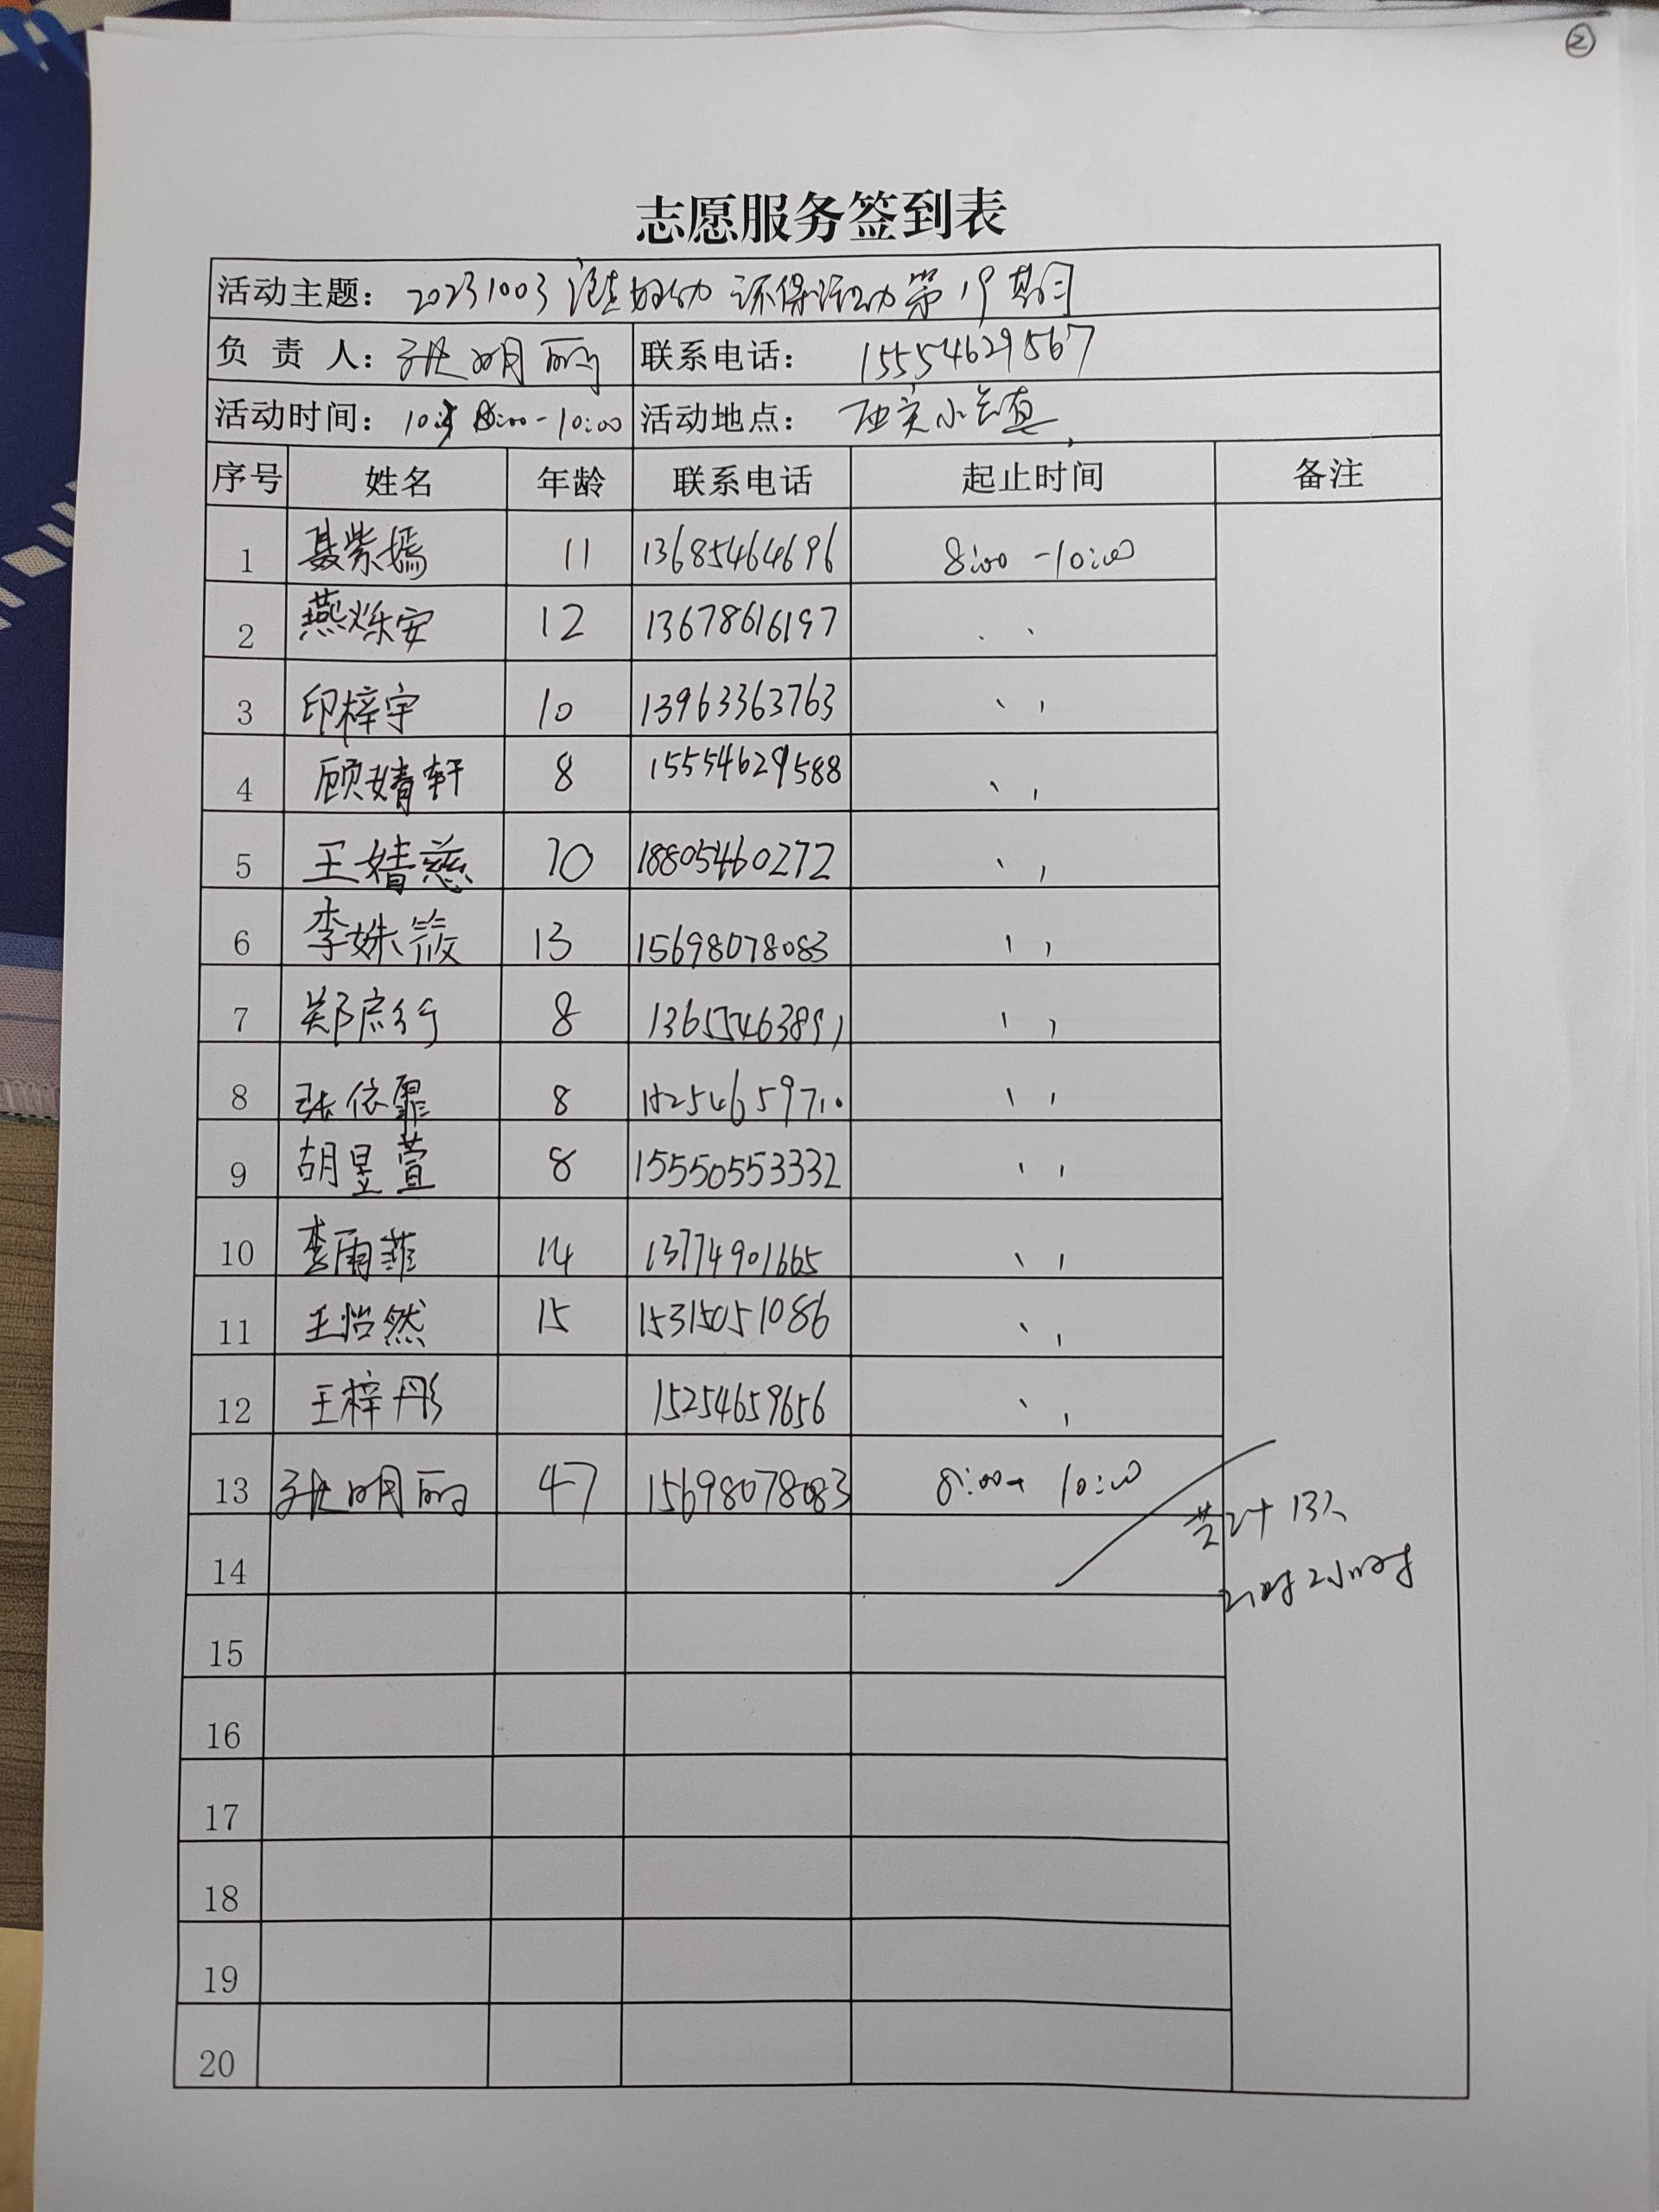 ②
志愿服务签到表
活动主题: 20231003 环保活动第19期
负 责 人: 张明丽 联系电话: 15554629567
活动时间: 8:00-10:00 活动地点:
序号 姓名 年龄 联系电话 起止时间 备注
1 聂紫嫣 11 13685464696 8:00-10:00
2 燕烁安 12 13678616197 、、
3 印梓宇 10 13963363763 、、
4 顾婧轩 8 15554629588 、、
5 王婧慈 10 18805460272 、、
6 李姝筱 13 15698078083 、、
7 郑启行 8 、、
8 张依霏 8 、、
9 胡昱萱 8 15550553332 、、
10 李雨菲 14 、、
11 王怡然 15 15315051086 、、
12 王梓彤 15254659656 、、
13 张明丽 47 15698078083 8:00-10:00
共计13人
14
计时2小时
15
16
17
18
19
20